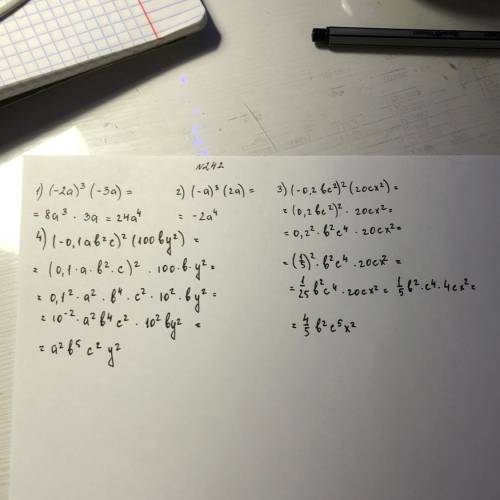 №242
1) (-2a)³ (-3a) =
= 8a³ · 3a = 24a⁴
2) (-a)³ (2a) =
= -2a⁴
3) (-0,2bc²)² (20cx²) =
= (0,2bc²)² · 20cx² =
= 0,2² · b²c⁴ · 20cx² =
= (1/5)² · b²c⁴ · 20cx² =
= 1/25 b²c⁴ · 20cx² = 1/5 b² · c⁴ · 4cx² =
= 4/5 b²c⁵x²
4) (-0,1ab²c)² (100by²) =
= (0,1 · a · b² · c)² · 100 · b · y² =
= 0,1² · a² · b⁴ · c² · 10² · by² =
= 10⁻² · a²b⁴c² · 10²by² =
= a²b⁵c²y²